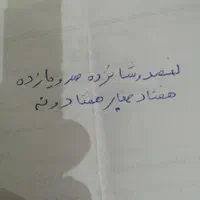 نهصد و شانزده صد و یازده
هفتاد چهار هفتاد و نه